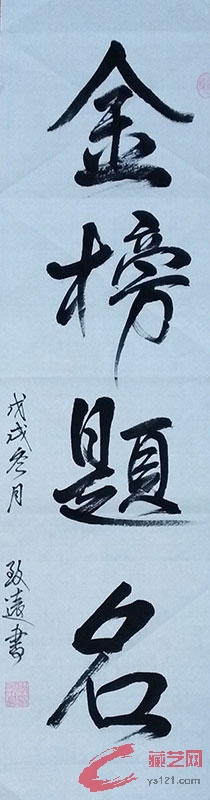 金榜題名
戊戌冬月
致遠書
藏艺网
ys121.com